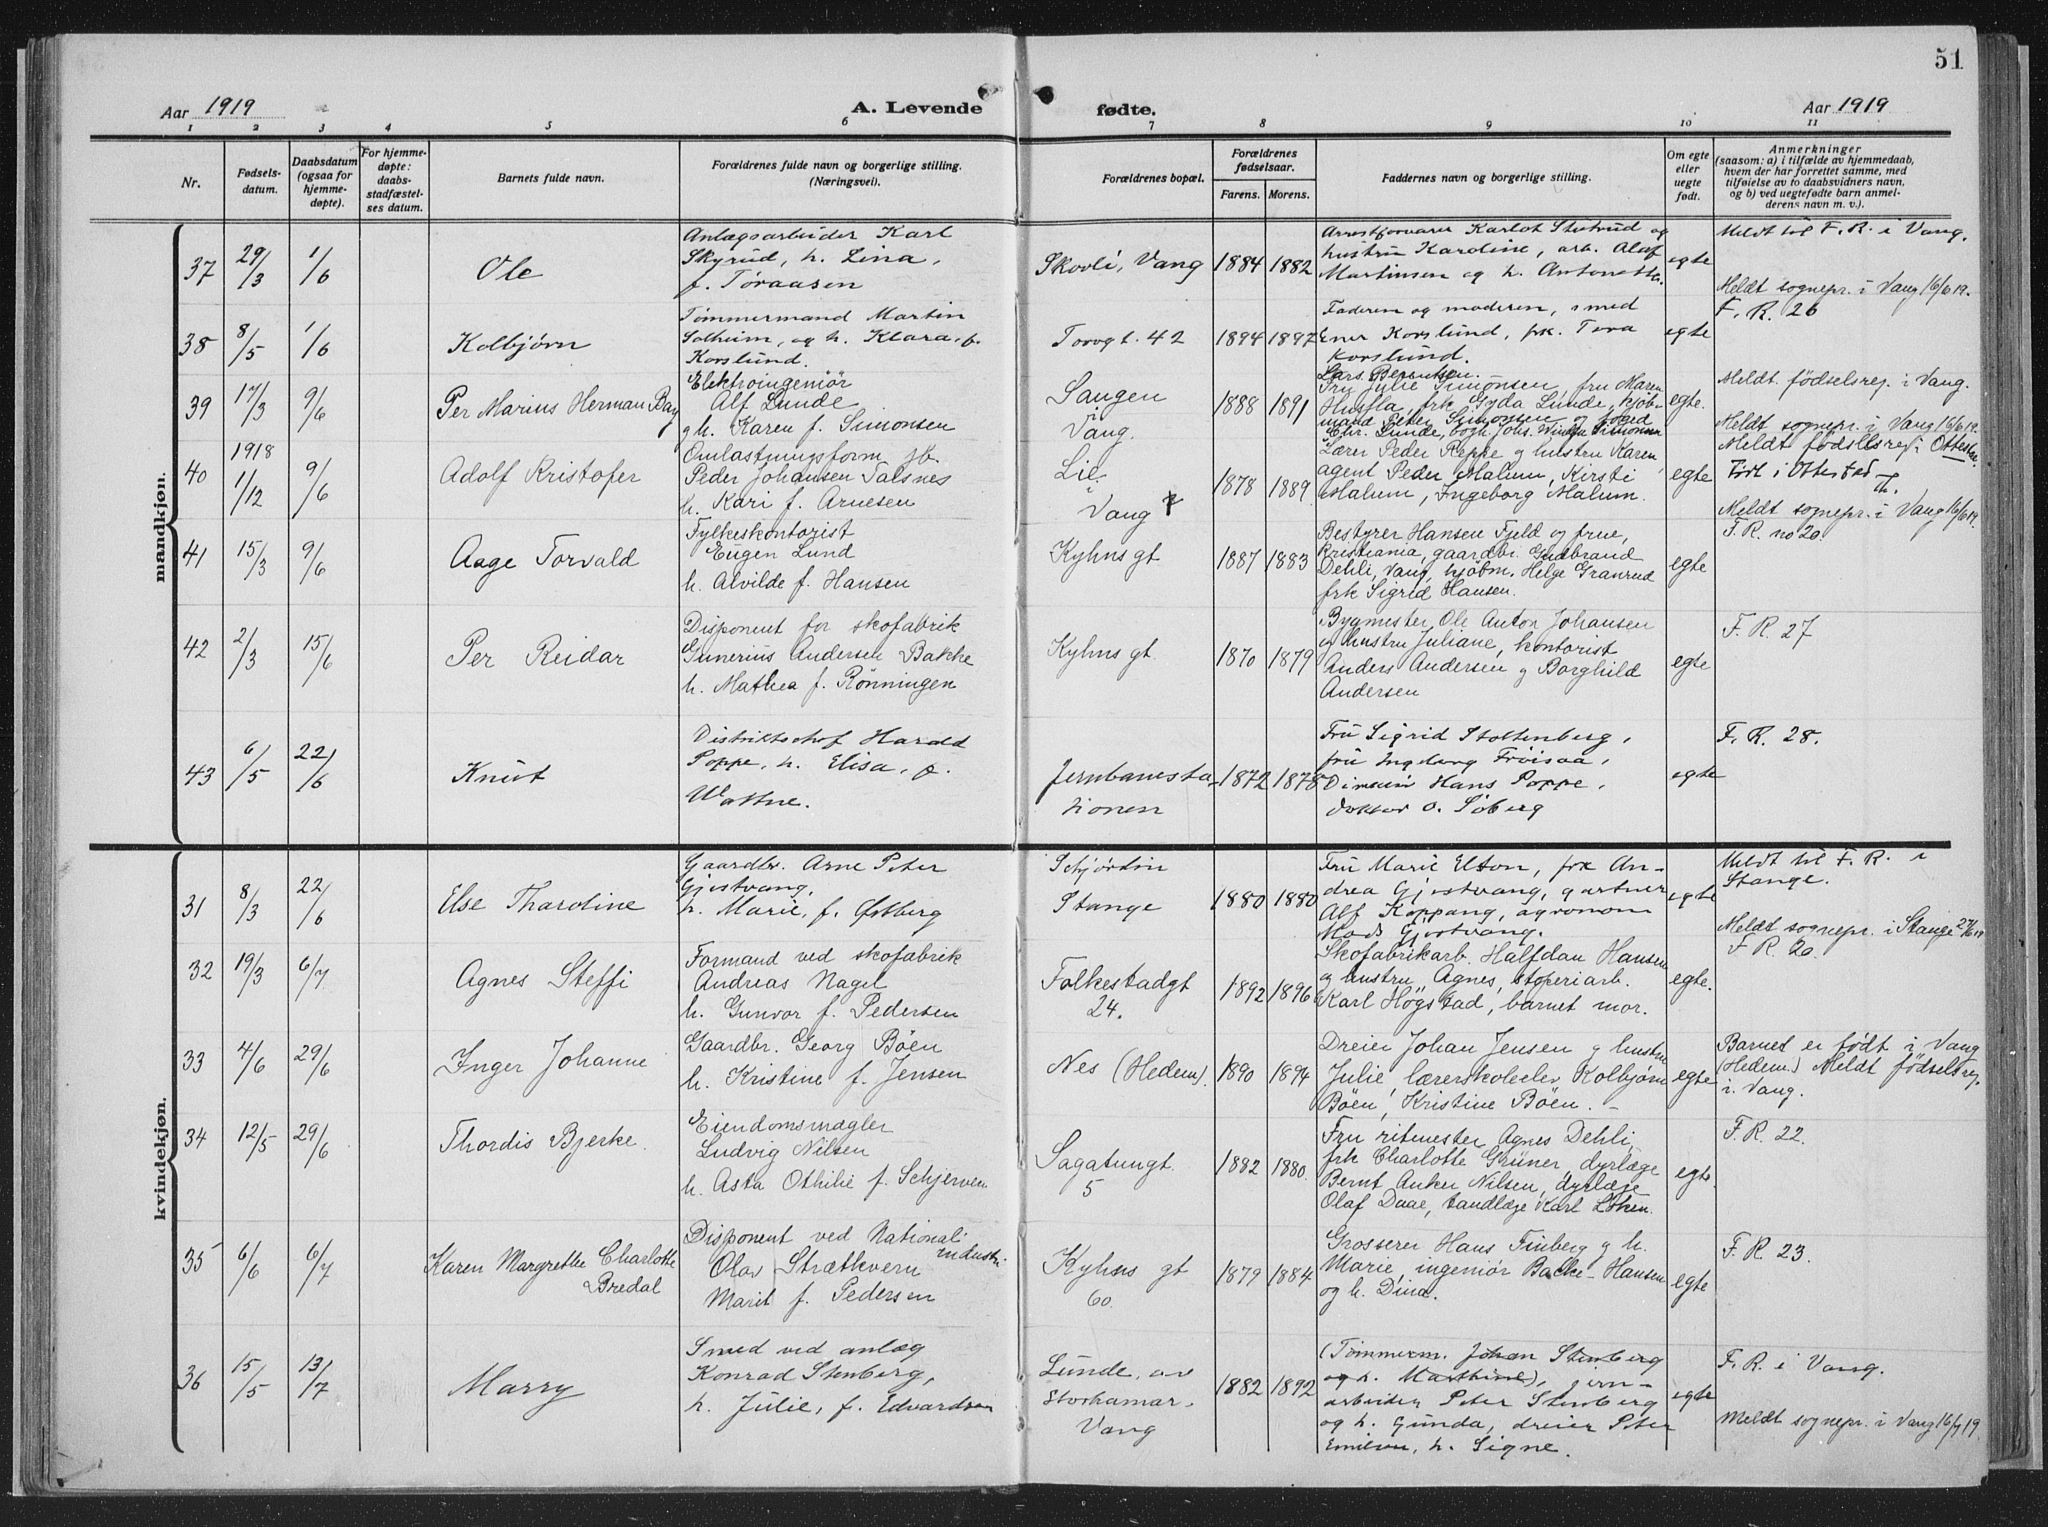 51
Aar 1919
A. Levende fødte.
Aar 1919
1 2 3 4 5 6 7 8 9 10 11
Nr.
Fødsels-
datum.
Daabsdatum
(ogsaa for
hjemme-
døpte).
For hjemme-
døpte:
daabs-
stadfæstel-
ses datum.
Barnets fulde navn.
Forældrenes fulde navn og borgerlige stilling.
(Næringsvei).
Forældrenes bopæl.
Forældrenes
fødselsaar.
Farens. Morens.
Faddernes navn og borgerlige stilling.
Om egte
eller
uegte
født.
Anmerkninger
(saasom: a) i tilfælde av hjemmedaab,
hvem der har forrettet samme, med
tilføielse av to daabsvidners navn,
og b) ved uegtefødte barn anmel-
derens navn m. v.).
mandkjøn.
37 29/3 1/6 Ole
Anlægsarbeider Karl
Skyrud, h. Lina,
f. Toraasen
Skovli, Vang 1884 1882
Arrestforvarer Karlot Stutrud og
hustru Karoline, arb. Olaf
Martinsen og h. Antonette.
egte
Meldt til F. R. i Vang.
Meldt sognepr. i Vang 16/6 19.
38 8/5 1/6 Kolbjørn
Tømmermand Martin
Solheim, og h. Klara, f.
Korslund.
Torvgt. 42 1894 1897
Faderen og moderen, smed
Ener Korslund, frk. Tora
Korslund.
egte
F. R. 26
39 17/3 9/6 Per Marius Herman Bay
Elektroingeniør
Alf Lunde
og h. Karen f. Simonsen
Sangen
i
Vang. 1888 1891
Lars Berentsen.
Fru Julie Simonsen, fru Maren
Husfla, frk Gyda Lunde, kjøb-
mand Peter Simonsen og
Chr. Lunde,
egte.
Meldt fødselsrej. i Vang.
Meldt sognepr. i Vang 16/6 19.
40 1918 1/12 9/6 Adolf Kristofer
Omlastningsform. jb.
Peder Johansen Valsnes
h. Kari f. Arnesen
Lie
i
Vang 1878 1889
Lærer Peder Reppe og hustru Karen,
agent Peder Malum, Kirsti
Malum, Ingeborg Malum.
egte
Meldt fødselsrej. i Ottestad.
Født i Ottestad
Meldt sognepr. i Vang 16/6 19.
41 15/3 9/6 Aage Torvald
Fylkeskontorist
Eugen Lund
h. Alvilde f. Hansen
Kyhns gt 1887 1883
Bestyrer Hansen Fjeld og frue,
Kristiania, gaardbr. Gudbrand
Dehli, Vang, kjøbm. Helge Granrud
frk Sigrid Hansen.
egte
F. R. no 20
42 2/3 15/6 Per Reidar
Disponent for skofabrik
Gunerius Andersen Bakke
h. Mathea f. Rønningen
Kyhns gt. 1870 1879
Bygmester Ole Anton Johansen
og hustru Juliane, kontorist
Anders Andersen og Borghild
Andersen
egte
F. R. 27
43 6/5 22/6 Knut
Distriktschef Harald
Poppe, h. Elisa, f.
Wattne.
Jernbanesta-
tionen 1872 1878
Fru Sigrid Stoltenberg,
fru Ingeborg Frøisaa,
Hans Poppe,
doktor O. Søberg
egte
F. R. 28.
kvindekjøn.
31 8/3 22/6 Else Tharoline
Gaardbr. Arne Peter
Gjestvang,
h. Marie, f. Østberg
Schjørtin
Stange 1880 1880
Fru Marie Elton, frk An-
drea Gjestvang, gartner
Alf Koppang, agronom
Mads Gjestvang.
egte
Meldt til F. R. i
Stange.
Meldt sognepr. i Stange 27/6 19
32 19/3 6/7 Agnes Steffi
Formand ved skofabrik
Andreas Nagel
h. Gunvor f. Pedersen
Folkestadgt
24. 1892 1896
Skofabrikarb. Halfdan Hansen
og hustru Agnes, stoperiarb.
Karl Høgstad, barnet mor.
egte.
F. R. 20.
33 4/6 29/6 Inger Johanne
Gaardbr. Georg Bøen
h. Kristine f. Jensen
Nes (Hedem). 1890 1894
Dreier Johan Jensen og hustru
Julie, lærerskoleelev Kolbjørn
Bøen, Kristine Bøen.
egte
Barnet er født i Vang
(Hedem.) Meldt fødselsrej.
i Vang.
34 12/5 29/6 Thordis Bjerke.
Eiendomsmægler
Ludvig Nilsen
h. Asta Othilie f. Schjerven
Sagatungt.
5 1882 1880.
Fru ritmester Agnes Dehli,
frk Charlotte Grüner, dyrlæge
Bernt Anker Nilsen, dyrlæge
Olaf Daae, tandlæge Karl Løken.
egte.
F. R. 22.
35 6/6 6/7 Karen Margrethe Charlotte
Bredal
Disponent ved National
industri
Olav Strætkvern
Marit f. Pedersen
Kyhns gt
60. 1879 1884
Grosserer Hans Finberg og h.
Marie, ingeniør Backe-Hansen
og h. Dina.
egte
F. R. 23.
36 15/5 13/7 Marry
Smed ved anlæg
Konrad Stenberg,
h. Julie, f. Edvardsen
Lunde, av
Storhamar,
Vang 1882 1892
(Tømmerm. Johan Stenberg
og h. Mathine), jern-
arbeider Peter Stenberg
og h. Gunda, dreier Peter
Emilsen, h. Signe.
egte
F. R. i Vang.
Meldt sognepr. i Vang 16/7 19.